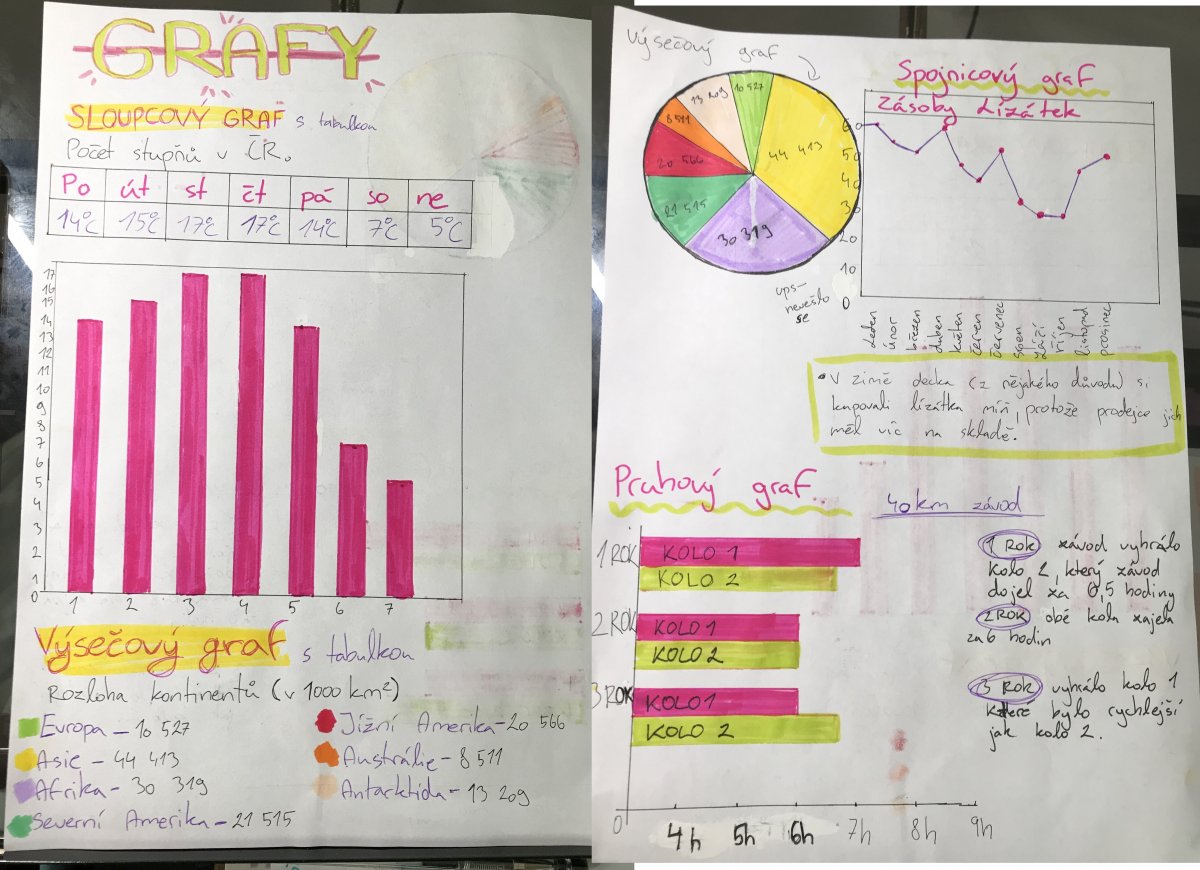 GRAFY
SLOUPCOVÝ GRAF s tabulkou
Počet stupňů v ČR.
Po út st čt pá so ne
14°C 15°C 17°C 17°C 14°C 7°C 5°C
17
16
15
14
13
12
11
10
9
8
7
6
5
4
3
2
1
0
1 2 3 4 5 6 7
Výsečový graf s tabulkou
Rozloha kontinentů (v 1000 km²)
Evropa – 10 527
Asie – 44 413
Afrika – 30 319
Severní Amerika – 21 515
Jížní Amerika – 20 566
Austrálie – 8 511
Antarktida – 13 209
Výsečový graf
10 527
44 413
30 319
21 515
20 566
8 511
13 209
ups–
nevešlo
se
Spojnicový graf
Zásoby Lízátek
60
50
40
30
20
10
0
Leden
únor
březen
duben
květen
červen
červenec
srpen
září
říjen
listopad
prosinec
• V zimě decka (z nějakého důvodu) si
kupovali lízátka míň, protože prodejce jich
měl víc na skladě.
Pruhový graf
40 km závod
1 ROK
KOLO 1
KOLO 2
2 ROK
KOLO 1
KOLO 2
3 ROK
KOLO 1
KOLO 2
0 4h 5h 6h 7h 8h 9h
1 ROK závod vyhrálo
kolo 2, který závod
dojel za 6,5 hodiny
2 ROK obě kola zajela
za 6 hodin
3 ROK vyhrálo kolo 1
které bylo rychlejší
jak kolo 2.